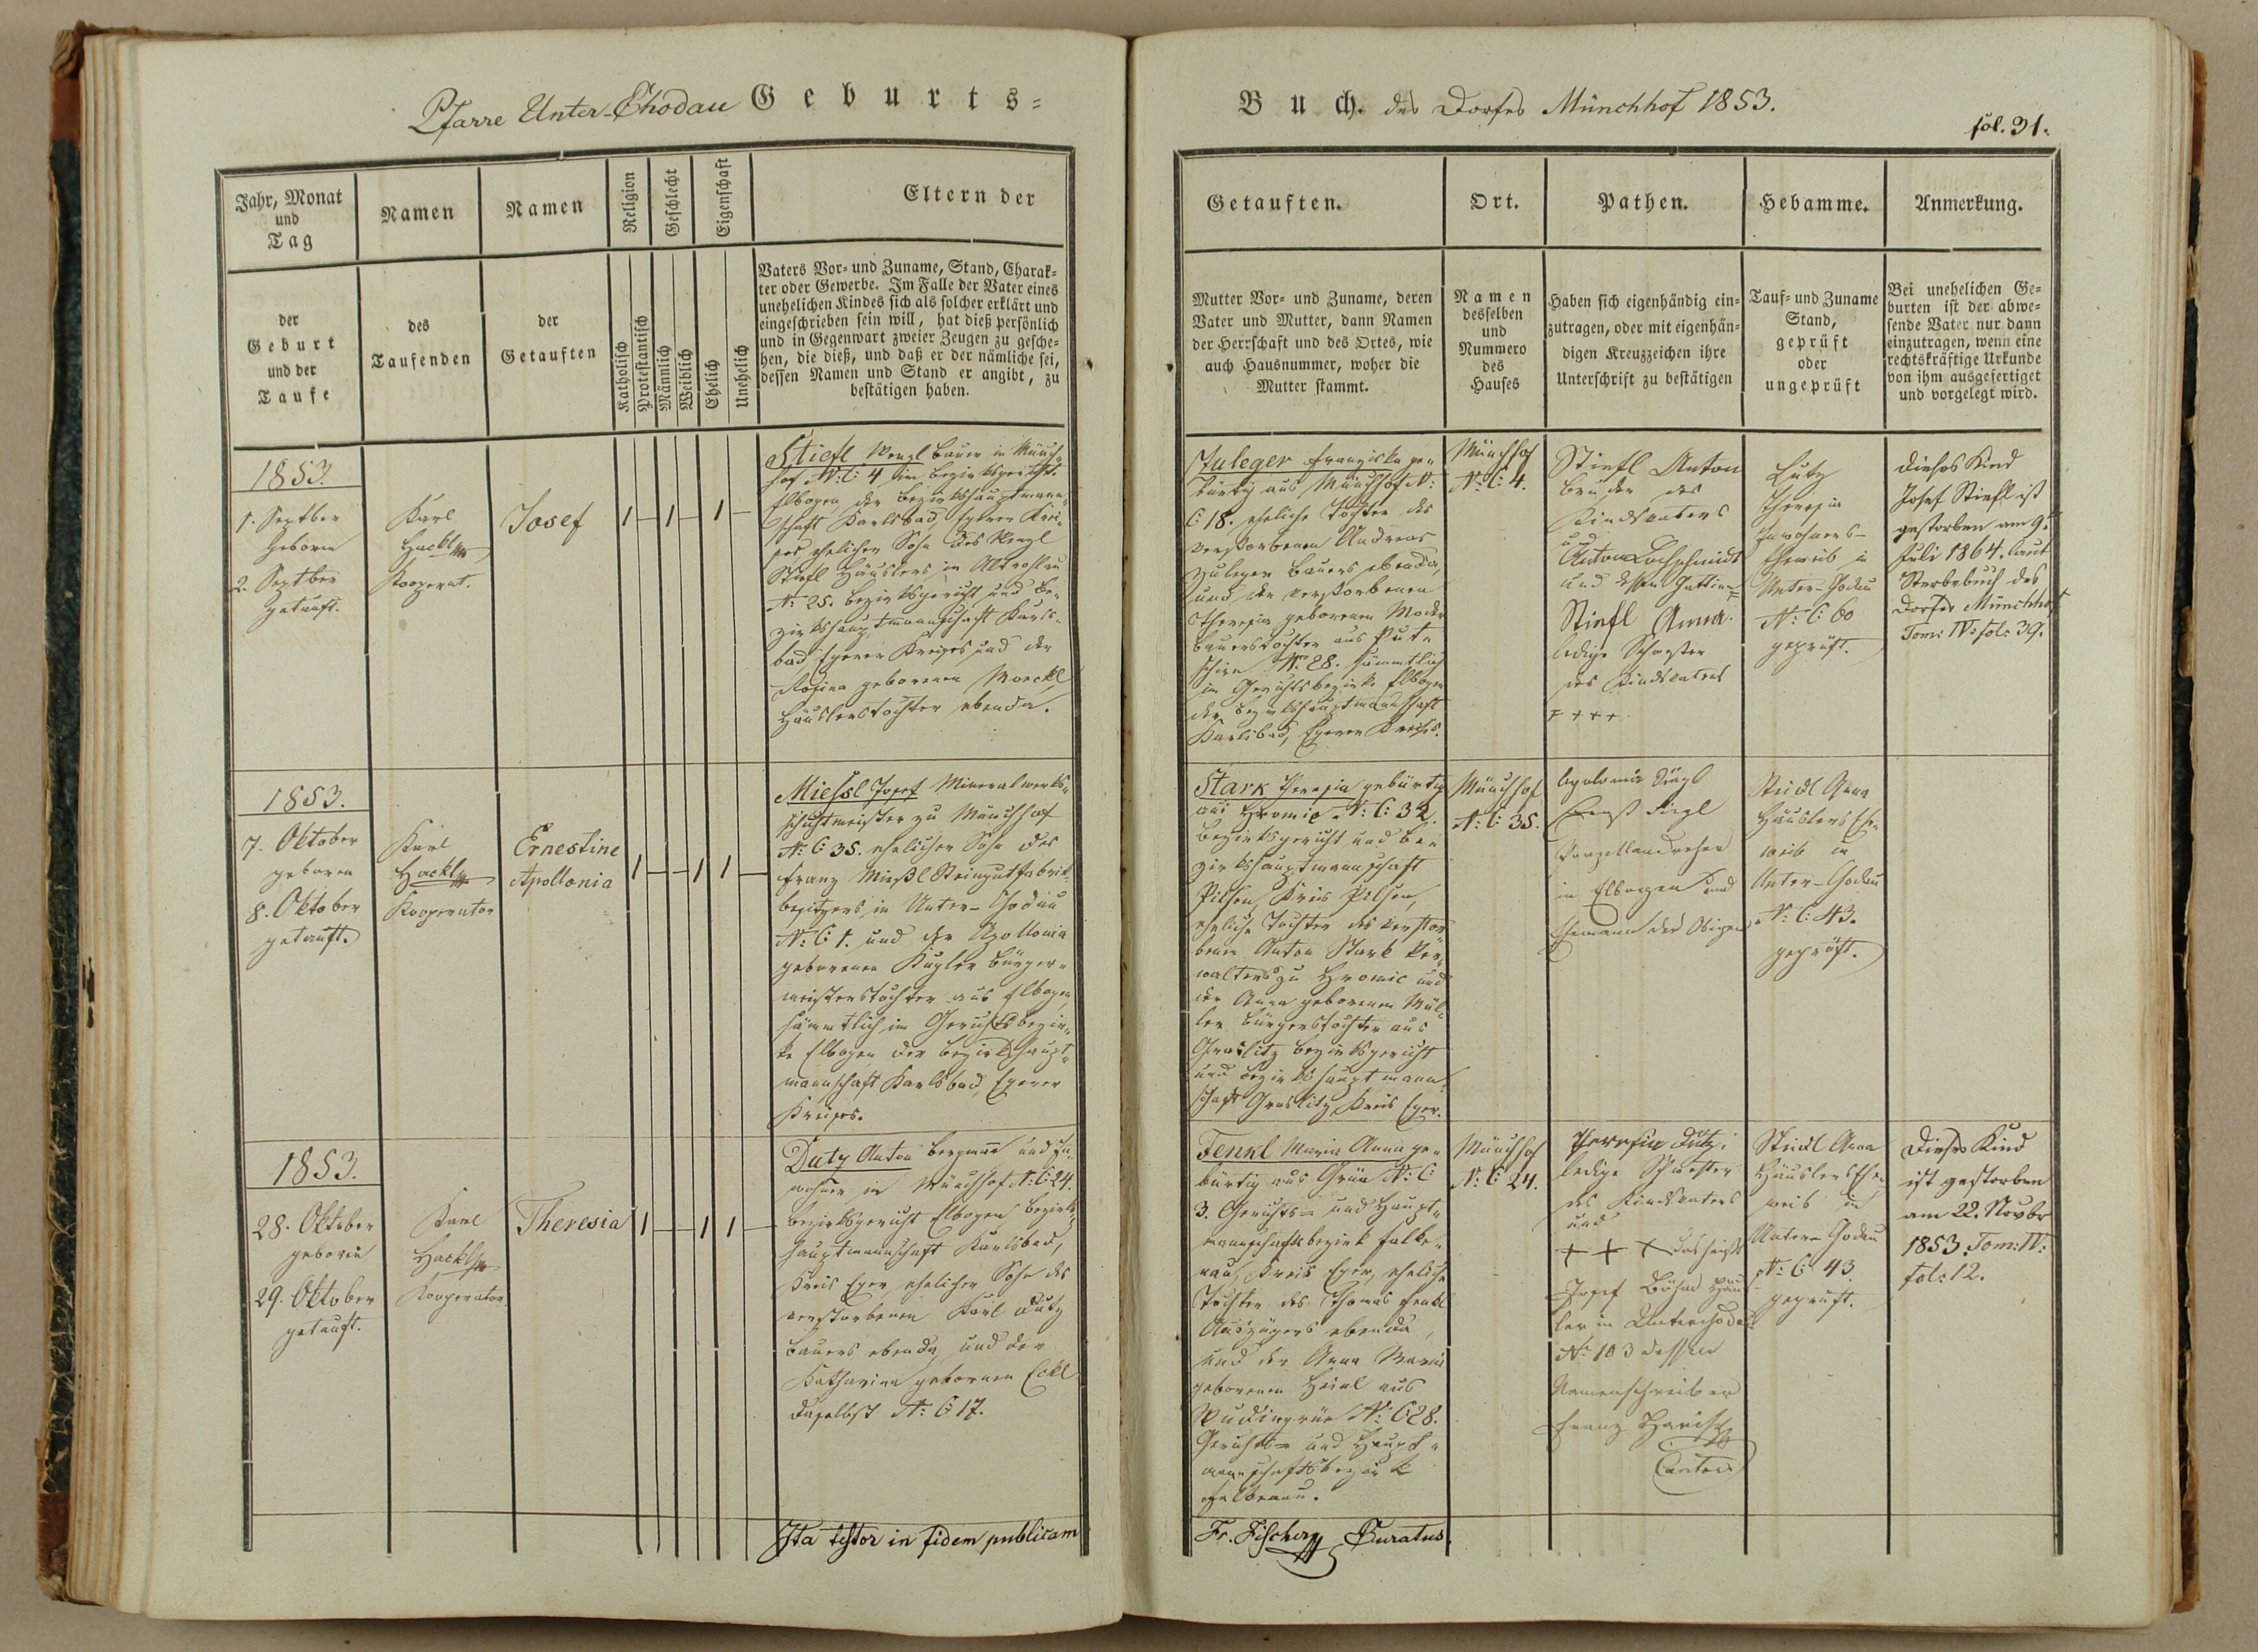 Pfarre Unter-Chodau Geburts-
Jahr, Monat
und
Tag
Namen
Namen
Religion
Geschlecht
Eigenschaft
Eltern der
der
Geburt
und der
Taufe
des
Taufenden
der
Getauften
Katholisch
Protestantisch
Männlich
Weiblich
Ehelich
Unehelich
Vaters Vor- und Zuname, Stand, Charak-
ter oder Gewerbe. Im Falle der Vater eines
unehelichen Kindes sich als solcher erklärt und
eingeschrieben sein will, hat dieß persönlich
und in Gegenwart zweier Zeugen zu gesche-
hen, die dieß, und daß er der nämliche sei,
dessen Namen und Stand er angibt, zu
bestätigen haben.
1853.
1. Septber
geboren
2. Septber
getauft.
Karl
Hackl
Kooperat.
Josef
1 1 1
Stiefl Wenzl Bauer in Münch-
hof N: C: 4 im Bezirksgerichte
Elbogen, der Bezirkshauptmann-
schaft Karlsbad, Egerer Krei-
ses, ehelicher Sohn des Wenzl
Stiefl Häuslers in Altrohlau
N: 25. Bezirksgericht und Be-
zirkshauptmannschaft Karls-
bad, Egerer Kreises und der
Rosina geborenen Moeckl
Häuslerstochter ebenda.
1853.
7. Oktober
geboren
8. Oktober
getauft.
Karl
Hackl
Kooperator
Ernestine
Apollonia
1 1 1
Miessl Josef Mineralwerks-
schichtmeister zu Münchhof
N: C: 35. ehelicher Sohn des
Franz Mießl Steingutfabrik-
besitzers in Unter-Chodau
N: C: 1. und der Apollonia
geborenen Kugler Bürger-
meisterstochter aus Elbogen
sämmtlich im Gerichtsbezir-
ke Elbogen der Bezirkshaupt-
mannschaft Karlsbad, Egerer
Kreises.
1853.
28. Oktober
geboren
29. Oktober
getauft.
Karl
Hackl
Kooperator.
Theresia
1 1 1
Dutz Anton Bergmann und In-
wohner in Münchhof N: C: 24.
Bezirksgericht Elbogen, Bezirks-
hauptmannschaft Karlsbad,
Kreis Eger, ehelicher Sohn des
verstorbenen Karl Dutz
Bauers ebenda, und der
Katharina gebornen Eckl
daselbst N: C 17.
Ita testor in fidem publicam
Buch. des Dorfes Münchhof 1853.
fol. 31.
Getauften.
Ort.
Pathen.
Hebamme.
Anmerkung.
Mutter Vor- und Zuname, deren
Vater und Mutter, dann Namen
der Herrschaft und des Ortes, wie
auch Hausnummer, woher die
Mutter stammt.
Namen
desselben
und
Nummero
des
Hauses
Haben sich eigenhändig ein-
zutragen, oder mit eigenhän-
digen Kreuzzeichen ihre
Unterschrift zu bestätigen
Tauf- und Zuname
Stand,
geprüft
oder
ungeprüft
Bei unehelichen Ge-
burten ist der abwe-
sende Vater nur dann
einzutragen, wenn eine
rechtskräftige Urkunde
von ihm ausgefertiget
und vorgelegt wird.
Zuleger Franziska ge-
bürtig aus Münchhof N:
C: 18. eheliche Tochter des
verstorbenen Andreas
Zuleger Bauers ebenda,
und der verstorbenen
Theresia geborenen Moder
Bauerstochter aus Put-
schirn N: 28. sämmtlich
im Gerichtsbezirke Elbogen
der Bezirkshauptmannschaft
Karlsbad, Egerer Kreises.
Münchhof
N: C: 4.
Stiefl Anton
Bruder des
Kindsvaters
und
Anton Lochschmidt
und dessen Gattin
Stiefl Anna
ledige Schwester
des Kindsvaters
++++
Lutz
Theresia
Inwohners-
Eheweib in
Unter-Chodau
N: C: 60
geprüft.
Dieses Kind
Josef Stiefl ist
gestorben am 9.
Juli 1864. laut
Sterbebuch des
Dorfes Münchhof
Tom: IV: fol: 39.
Stark Theresia gebürtig
aus Hromic N: C: 32.
Bezirksgericht und Be-
zirkshauptmannschaft
Pilsen Kreis Pilsen,
eheliche Tochter des verstor-
benen Anton Stark Ver-
walters zu Hromic und
der Anna geborenen Mül-
ler Bürgerstochter aus
Graslitz Bezirksgericht
und Bezirkshauptmann-
schaft Graslitz, Kreis Eger.
Münchhof
N: C: 35.
Apolonia
Ernst
Porzellandreher
in Elbogen und
Ehemann der Obigen
Steidl Anna
Häuslers Ehe-
weib in
Unter-Chodau
N: C: 43.
geprüft.
Fenkl Maria Anna ge-
bürtig aus Grün N: C:
3. Gerichts- und Haupt-
mannschaftsbezirk Falke-
nau, Kreis Eger, eheliche
Tochter des Thomas Fenkl
Auszügers ebenda,
und der Anna Maria
geborenen Heinl aus
N: C 28.
Gerichts- und Haupt-
mannschaftsbezirk
Falkenau.
Münchhof
N: C: 24.
Theresia Dutz
ledige Schwester
des Kindsvaters
und
+ + + das heißt
Josef Böhm Häus
ler in Unterchodau
N: 103 dessen
Namenschreiber
Franz
Cantor
Steidl Anna
Häuslers Ehe-
weib in
Unter-Chodau
N: C 43
geprüft.
Dieses Kind
ist gestorben
am 22. Novbr
1853. Tom: IV:
fol: 12.
Fr. Fischer Curatus.